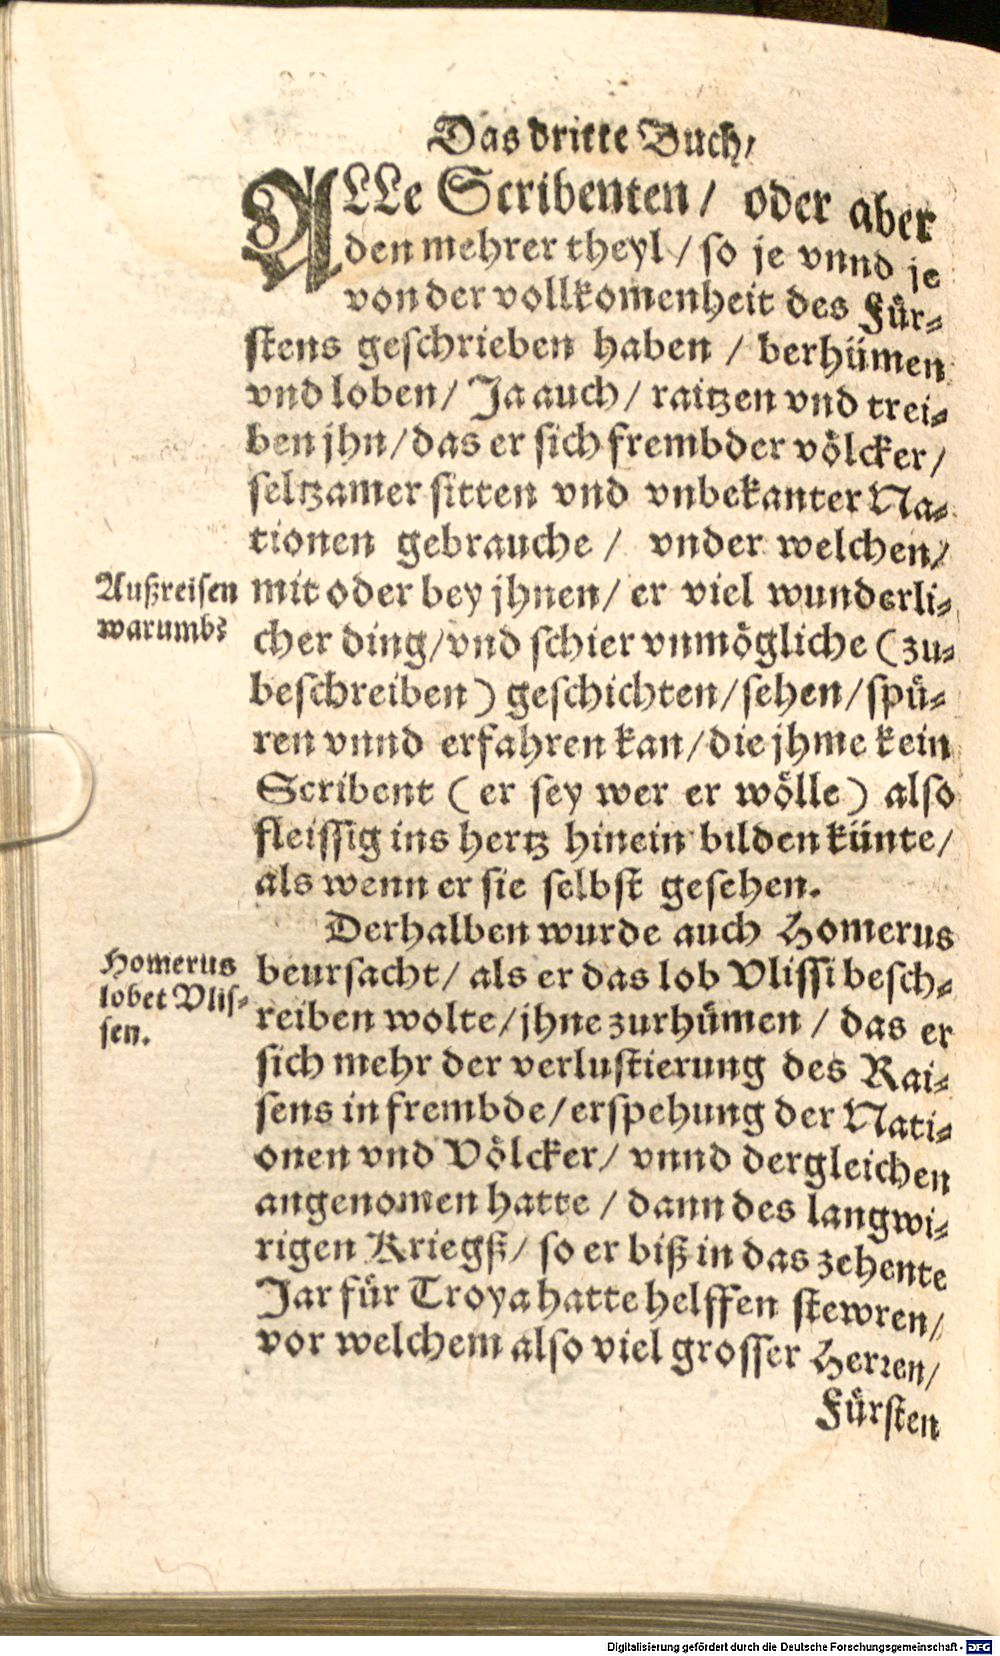 Das dritte Buch/
ALLe Scribenten/ oder aber
den mehrer theyl/ so je vnnd je
von der vollkomenheit des Für-
stens geschrieben haben / berhümen
vnd loben/ Ja auch/ raitzen vnd trei-
ben jhn/ das er sich frembder völcker/
seltzamer sitten vnd vnbekanter Na-
tionen gebrauche / vnder welchen/
Außreisen
warumb?
mit oder bey jhnen/ er viel wunderli-
cher ding/ vnd schier vnmögliche (zu-
beschreiben) geschichten/ sehen/ spü-
ren vnnd erfahren kan/ die jhme kein
Scribent (er sey wer er wölle) also
fleissig ins hertz hinein bilden künte/
als wenn er sie selbst gesehen.
Derhalben wurde auch Homerus
Homerus
lobet Vlis-
sen.
beursacht/ als er das lob Vlissi besch-
reiben wolte/ jhne zurhümen / das er
sich mehr der verlustierung des Rai-
sens in frembde/ erspehung der Nati-
onen vnd Völcker/ vnnd dergleichen
angenomen hatte / dann des langwi-
rigen Kriegß/ so er biß in das zehente
Jar für Troya hatte helffen stewren/
vor welchem also viel grosser Herren/
Fürsten
Digitalisierung gefördert durch die Deutsche Forschungsgemeinschaft - DFG